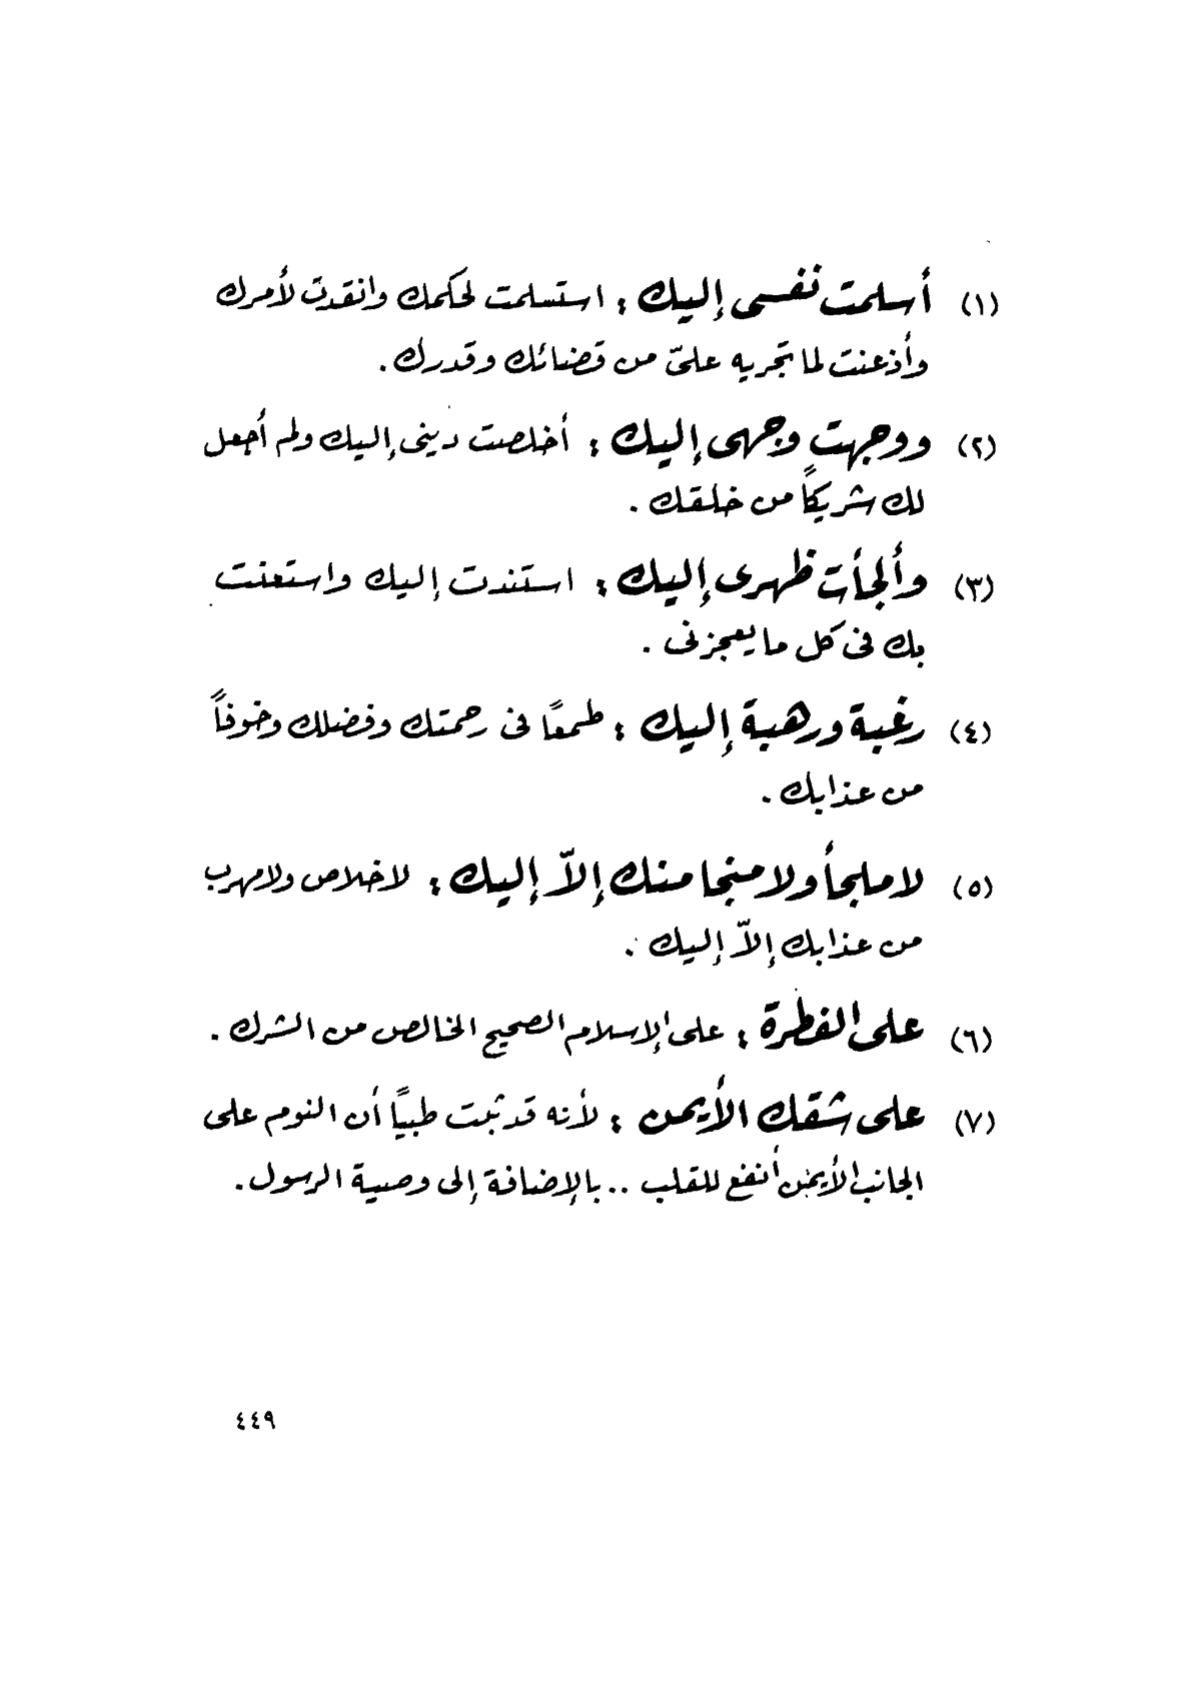 (١) أسلمت نفسى إليك : استسلمت لحكمك وانقدت لأمرك
وأذعنت لما تجريه علىّ من قضائك وقدرك.
(٢) ووجهت وجهى إليك : أخلصت دينى إليك ولم أجعل
لك شريكاً من خلقك .
(٣) وألجأت ظهرى إليك : استندت إليك واستعنت
بك فى كل ما يعجزنى .
(٤) رغبة ورهبة إليك : طمعًا فى رحمتك وفضلك وخوفاً
من عذابك .
(٥) لا ملجأ ولا منجا منك إلاّ إليك : لا خلاص ولا مهرب
من عذابك إلاّ إليك .
(٦) على الفطرة : على الإسلام الصحيح الخالص من الشرك .
(٧) على شقك الأيمن : لأنه قد ثبت طبيًا أن النوم على
الجانب الأيمن أنفع للقلب .. بالإضافة إلى وصية الرسول.
٤٤٩